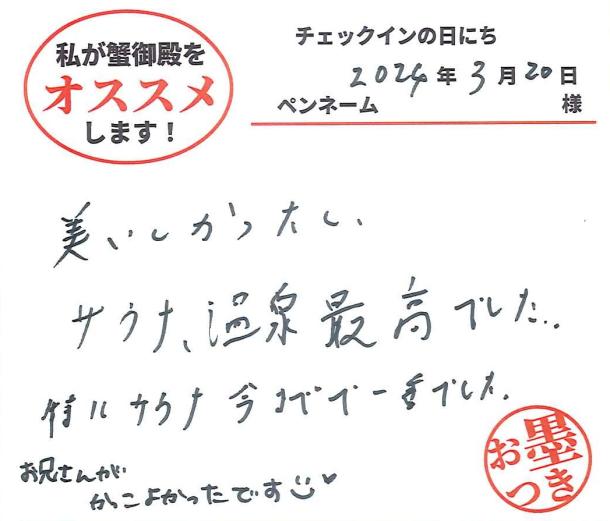 私が蟹御殿を
オススメ
します！
チェックインの日にち
2024年3月20日
ペンネーム 様
美いしかったし、
サウナ、温泉最高でした..
特にサウナ今までで一番でした。
お兄さんが
かっこよかったです
お墨つき